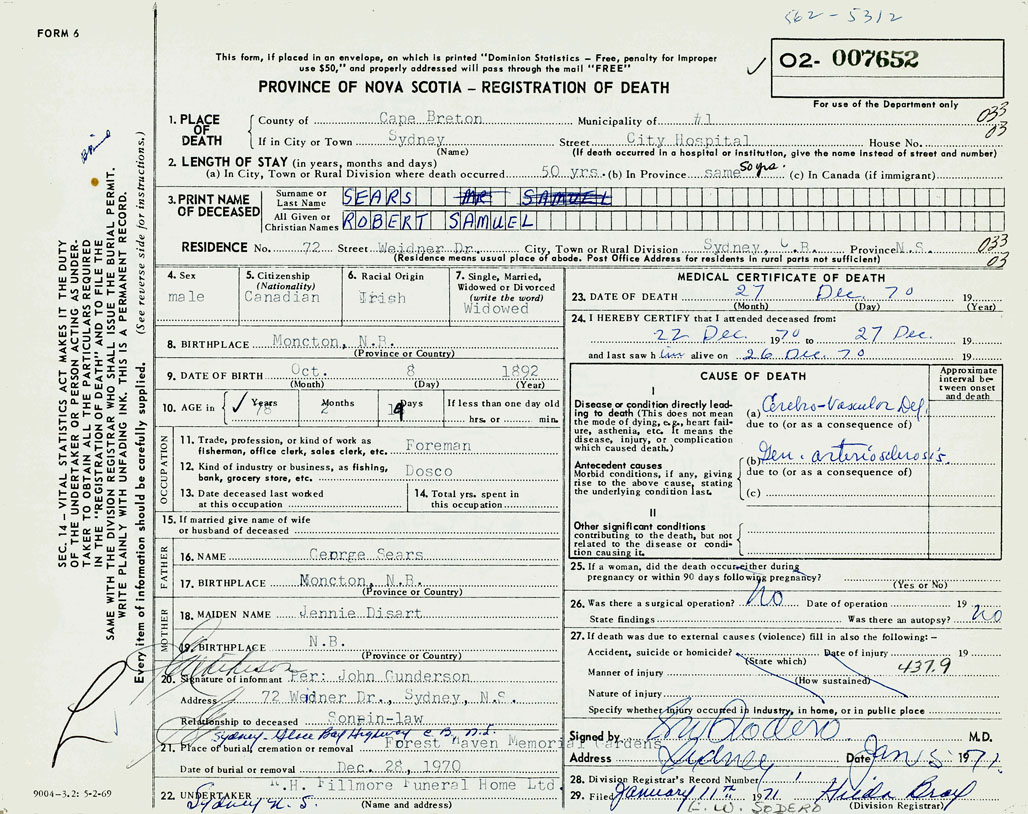 562-5312
FORM 6
This form, if placed in an envelope, on which is printed "Dominion Statistics – Free, penalty for improper
use $50," and properly addressed will pass through the mail "FREE"
O2- 007652
PROVINCE OF NOVA SCOTIA – REGISTRATION OF DEATH
For use of the Department only
1. PLACE OF DEATH
County of Cape Breton Municipality of #1 033
If in City or Town Sydney Street City Hospital House No. 03
(Name) (If death occurred in a hospital or institution, give the name instead of street and number)
2. LENGTH OF STAY (in years, months and days)
(a) In City, Town or Rural Division where death occurred 50 yrs. (b) In Province same 50 yrs. (c) In Canada (if immigrant)
3. PRINT NAME OF DECEASED
Surname or Last Name SEARS MR SAMUEL
All Given or Christian Names ROBERT SAMUEL
RESIDENCE No. 72 Street Weidner Dr. City, Town or Rural Division Sydney, C.B. Province N.S. 033
(Residence means usual place of abode. Post Office Address for residents in rural parts not sufficient) 03
4. Sex
male
5. Citizenship
(Nationality)
Canadian
6. Racial Origin
Irish
7. Single, Married,
Widowed or Divorced
(write the word)
Widowed
8. BIRTHPLACE Moncton, N.B.
(Province or Country)
9. DATE OF BIRTH Oct. 8 1892
(Month) (Day) (Year)
10. AGE in Years Months Days If less than one day old
78 2 19 hrs. or min.
OCCUPATION
11. Trade, profession, or kind of work as
fisherman, office clerk, sales clerk, etc. Foreman
12. Kind of industry or business, as fishing,
bank, grocery store, etc. Dosco
13. Date deceased last worked
at this occupation
14. Total yrs. spent in
this occupation
15. If married give name of wife
or husband of deceased
FATHER
16. NAME George Sears
17. BIRTHPLACE Moncton, N.B.
(Province or Country)
MOTHER
18. MAIDEN NAME Jennie Disart
19. BIRTHPLACE N.B.
(Province or Country)
20. Signature of informant Per: John Gunderson
Address 72 Wedner Dr., Sydney, N.S.
Relationship to deceased Son-in-law
Sydney-Glace Bay Highway C.B., N.S.
21. Place of burial, cremation or removal Forest Haven Memorial Gardens
Date of burial or removal Dec. 28, 1970
22. UNDERTAKER R.H. Fillmore Funeral Home Ltd.
Sydney N.S. (Name and address)
MEDICAL CERTIFICATE OF DEATH
23. DATE OF DEATH 27 Dec. 70 19
(Month) (Day) (Year)
24. I HEREBY CERTIFY that I attended deceased from:
22 Dec 1970 to 27 Dec. 19
and last saw him alive on 26 Dec. 70 19
CAUSE OF DEATH
Approximate
interval be-
tween onset
and death
I
Disease or condition directly lead-
ing to death (This does not mean
the mode of dying, e.g., heart fail-
ure, asthenia, etc. It means the
disease, injury, or complication
which caused death.)
(a) Cerebro-Vascular Def.
due to (or as a consequence of)
Antecedent causes
Morbid conditions, if any, giving
rise to the above cause, stating
the underlying condition last.
(b) Gen. arteriosclerosis.
due to (or as a consequence of)
(c)
II
Other significant conditions
contributing to the death, but not
related to the disease or condi-
tion causing it.
25. If a woman, did the death occur either during
pregnancy or within 90 days following pregnancy?
(Yes or No)
26. Was there a surgical operation? No Date of operation 19
State findings Was there an autopsy? No
27. If death was due to external causes (violence) fill in also the following: –
Accident, suicide or homicide? Date of injury 19
(State which)
Manner of injury 437.9
(How sustained)
Nature of injury
Specify whether injury occurred in industry, in home, or in public place
Signed by M.D.
Address Sydney Date Jan 5 1971.
28. Division Registrar's Record Number 1
29. Filed January 11th 1971 Hilda Bray
E. W. SODERO (Division Registrar)
SEC. 14 – VITAL STATISTICS ACT MAKES IT THE DUTY
OF THE UNDERTAKER OR PERSON ACTING AS UNDER-
TAKER TO OBTAIN ALL THE PARTICULARS REQUIRED
IN THE "REGISTRATION OF DEATH" AND TO FILE THE
SAME WITH THE DIVISION REGISTRAR WHO SHALL ISSUE THE BURIAL PERMIT.
WRITE PLAINLY WITH UNFADING INK. THIS IS A PERMANENT RECORD.
Every item of information should be carefully supplied. (See reverse side for instructions.)
9004-3.2: 5-2-69